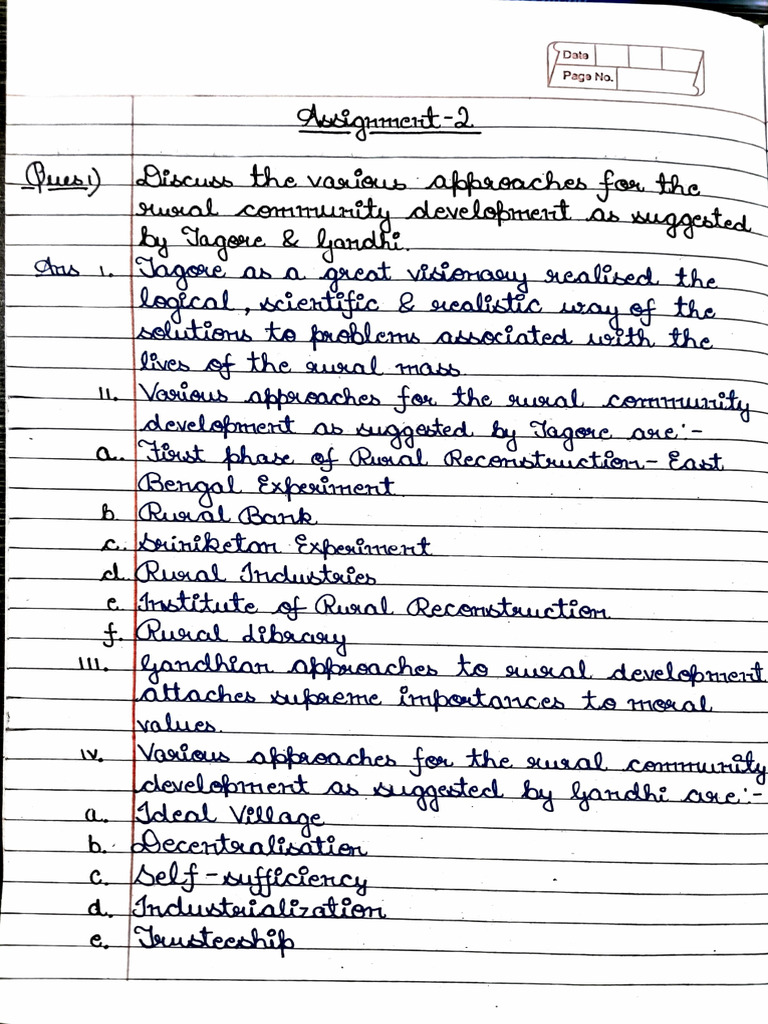 Date
Page No.
Assignment-2
Ques1) Discuss the various approaches for the
rural community development as suggested
by Tagore & Gandhi.
Ans i. Tagore as a great visionary realised the
logical, scientific & realistic way of the
solutions to problems associated with the
lives of the rural mass.
ii. Various approaches for the rural community
development as suggested by Tagore are:-
a. First phase of Rural Reconstruction- East
Bengal Experiment
b. Rural Bank
c. Sriniketan Experiment
d. Rural Industries
e. Institute of Rural Reconstruction
f. Rural Library
iii. Gandhian approaches to rural development
attaches supreme importances to moral
values.
iv. Various approaches for the rural community
development as suggested by Gandhi are:-
a. Ideal Village
b. Decentralisation
c. Self-sufficiency
d. Industrialization
e. Trusteeship